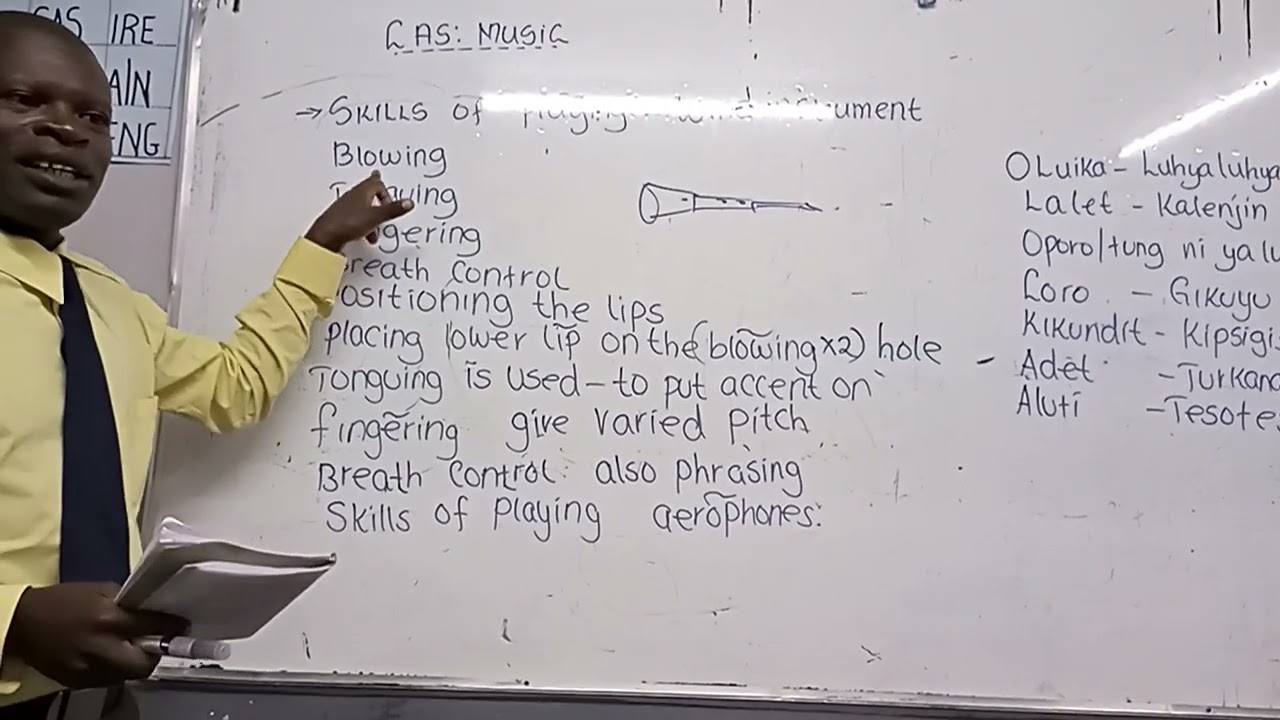 CAS IRE
AIN
ENG
CAS: MUSIC
→ SKILLS of playing wind instrument
Blowing
Tonguing
gering
Breath control
ositioning the lips
placing lower lip on the (blowing x2) hole
Tonguing is used - to put accent on
fingering give varied pitch
Breath control: also phrasing
Skills of playing aerophones:
Oluika - Luhyaluhya
Lalet - Kalenjin
Oporo/tung ni ya lu
Coro - GIKUYU
Kikundit - Kipsigis
- Adet - Turkana
Aluti - Tesote